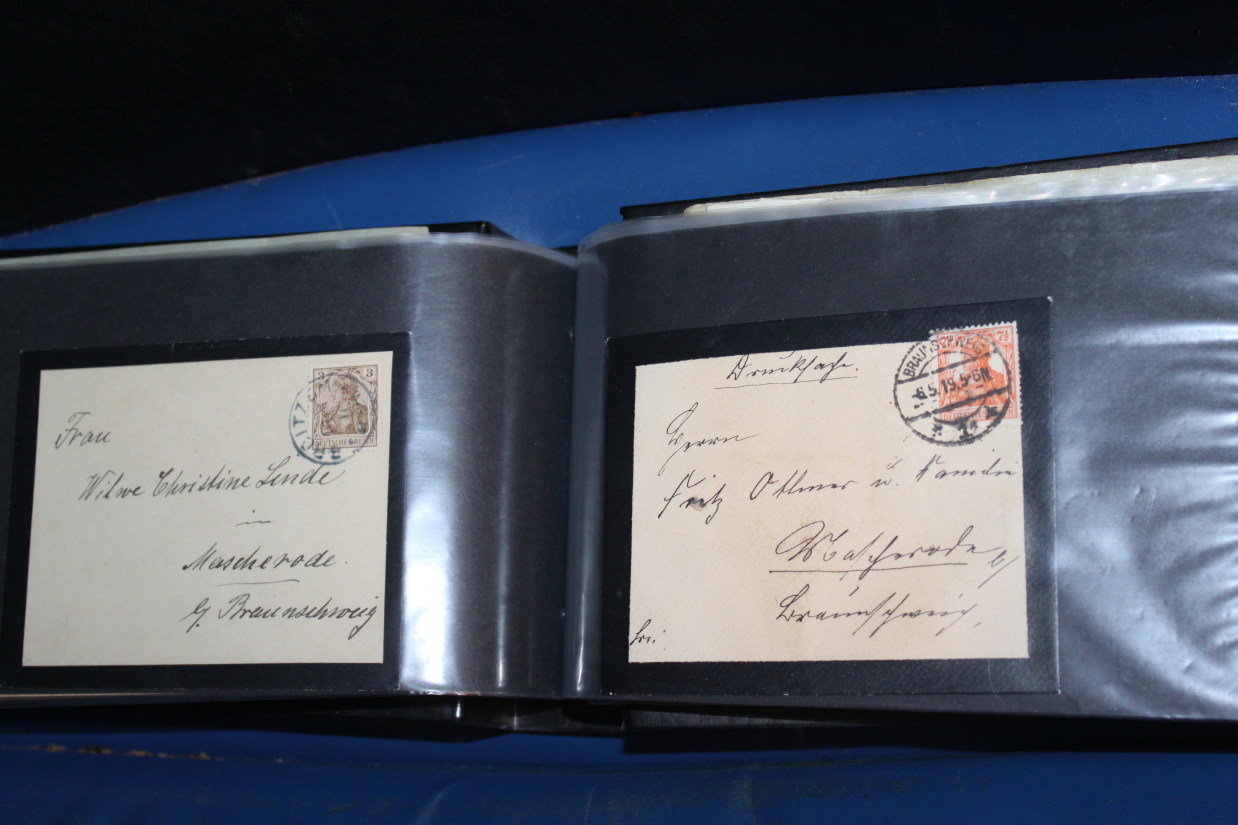 3
DEUTSCHES REICH
Frau
Witwe Christine Linde
in
Mascherode.
b/ Braunschweig
Drucksache.
7½
BRAUNSCHWEIG
6.5.19.5-6N.
Herrn
Fritz Ottmer u. Familie
Mascherode b/
Braunschweig,